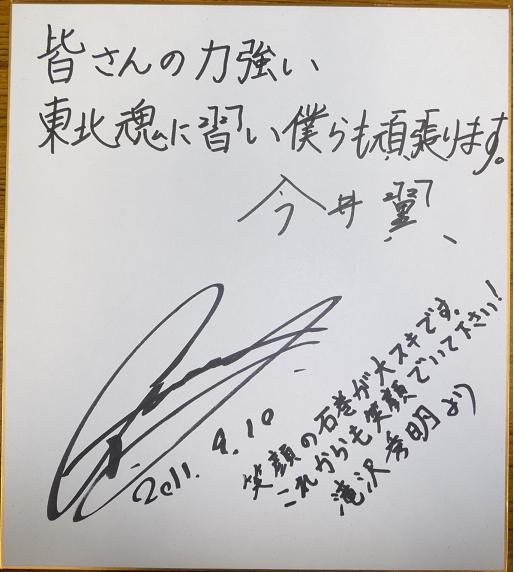 皆さんの力強い
東北魂に習い僕らも頑張ります。
今井翼
2011. 9.10
笑顔の石巻が大スキです。
これからも笑顔でいて下さい!
滝沢秀明より